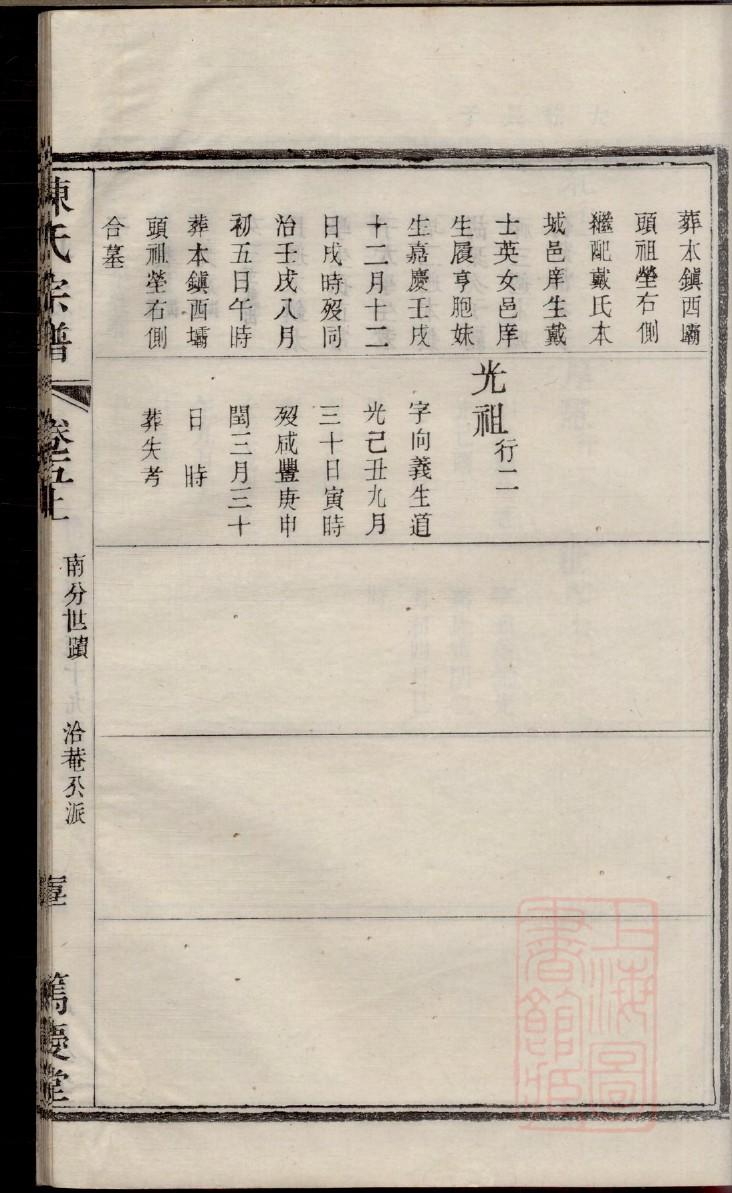 葬本鎭西壩
頭祖塋右側
繼配戴氏本
城邑庠生戴
士英女邑庠
生履亨胞妹
生嘉慶壬戌
十二月十二
日戌時歿同
治壬戌八月
初五日午時
葬本鎭西壩
頭祖塋右側
合墓
光祖行二
字向義生道
光己丑九月
三十日寅時
歿咸豐庚申
閏三月三十
日 時
葬失考
陳氏宗譜
卷之五上
南分世蹟
洽菴公派
篤慶堂
上海圖書館藏